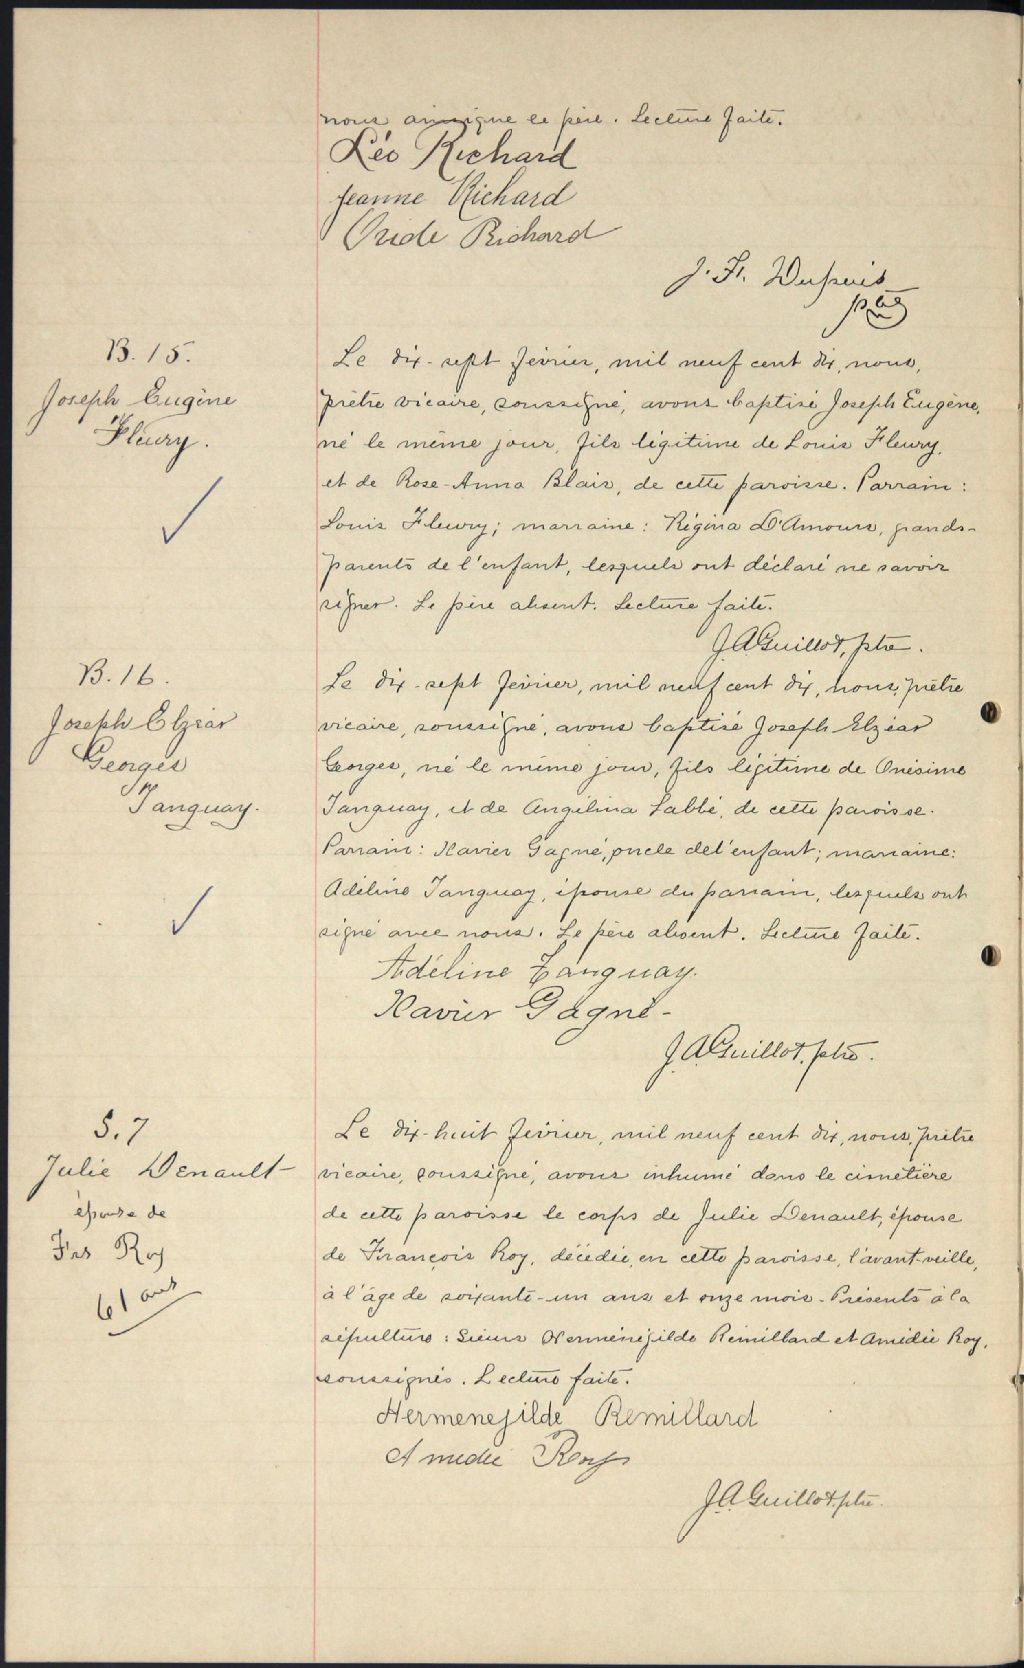 nous ainsique le père. Lecture faite.
Léo Richard
Jeanne Richard
Ovide Richard
J. F. Dupuis
ptre
B. 15.
Joseph Eugène
Fleury.
Le dix-sept février, mil neuf cent dix, nous,
prêtre vicaire, soussigné, avons baptisé Joseph Eugène,
né le même jour, fils légitime de Louis Fleury,
et de Rose-Anna Blais, de cette paroisse. Parrain:
Louis Fleury; marraine: Régina D'Amours, grands-
parents de l'enfant, lesquels ont déclaré ne savoir
signer. Le père absent. Lecture faite.
J. A Guillot, ptre.
B. 16.
Joseph Elzéar
Georges
Tanguay.
Le dix-sept février, mil neuf cent dix, nous, prêtre
vicaire, soussigné, avons baptisé Joseph Elzéar
Georges, né le même jour, fils légitime de Onésime
Tanguay, et de Angélina Labbé, de cette paroisse.
Parrain: Xavier Gagné, oncle de l'enfant; marraine:
Adéline Tanguay, épouse du parrain, lesquels ont
signé avec nous. Le père absent. Lecture faite.
Adéline Tanguay.
Xavier Gagné-
J. A Guillot, ptre.
S. 7
Julie Denault
épouse de
Frs Roy
61 ans
Le dix-huit février, mil neuf cent dix, nous, prêtre
vicaire, soussigné, avons inhumé dans le cimetière
de cette paroisse le corps de Julie Denault, épouse
de François Roy, décédée, en cette paroisse, l'avant-veille,
à l'âge de soixante-un ans et onze mois. Présents à la
sépulture: Sieurs Herménégilde Rémillard et Amédée Roy,
soussignés. Lecture faite.
Hermenegilde Remillard
Amedée Roy
J. A. Guillot, ptre.